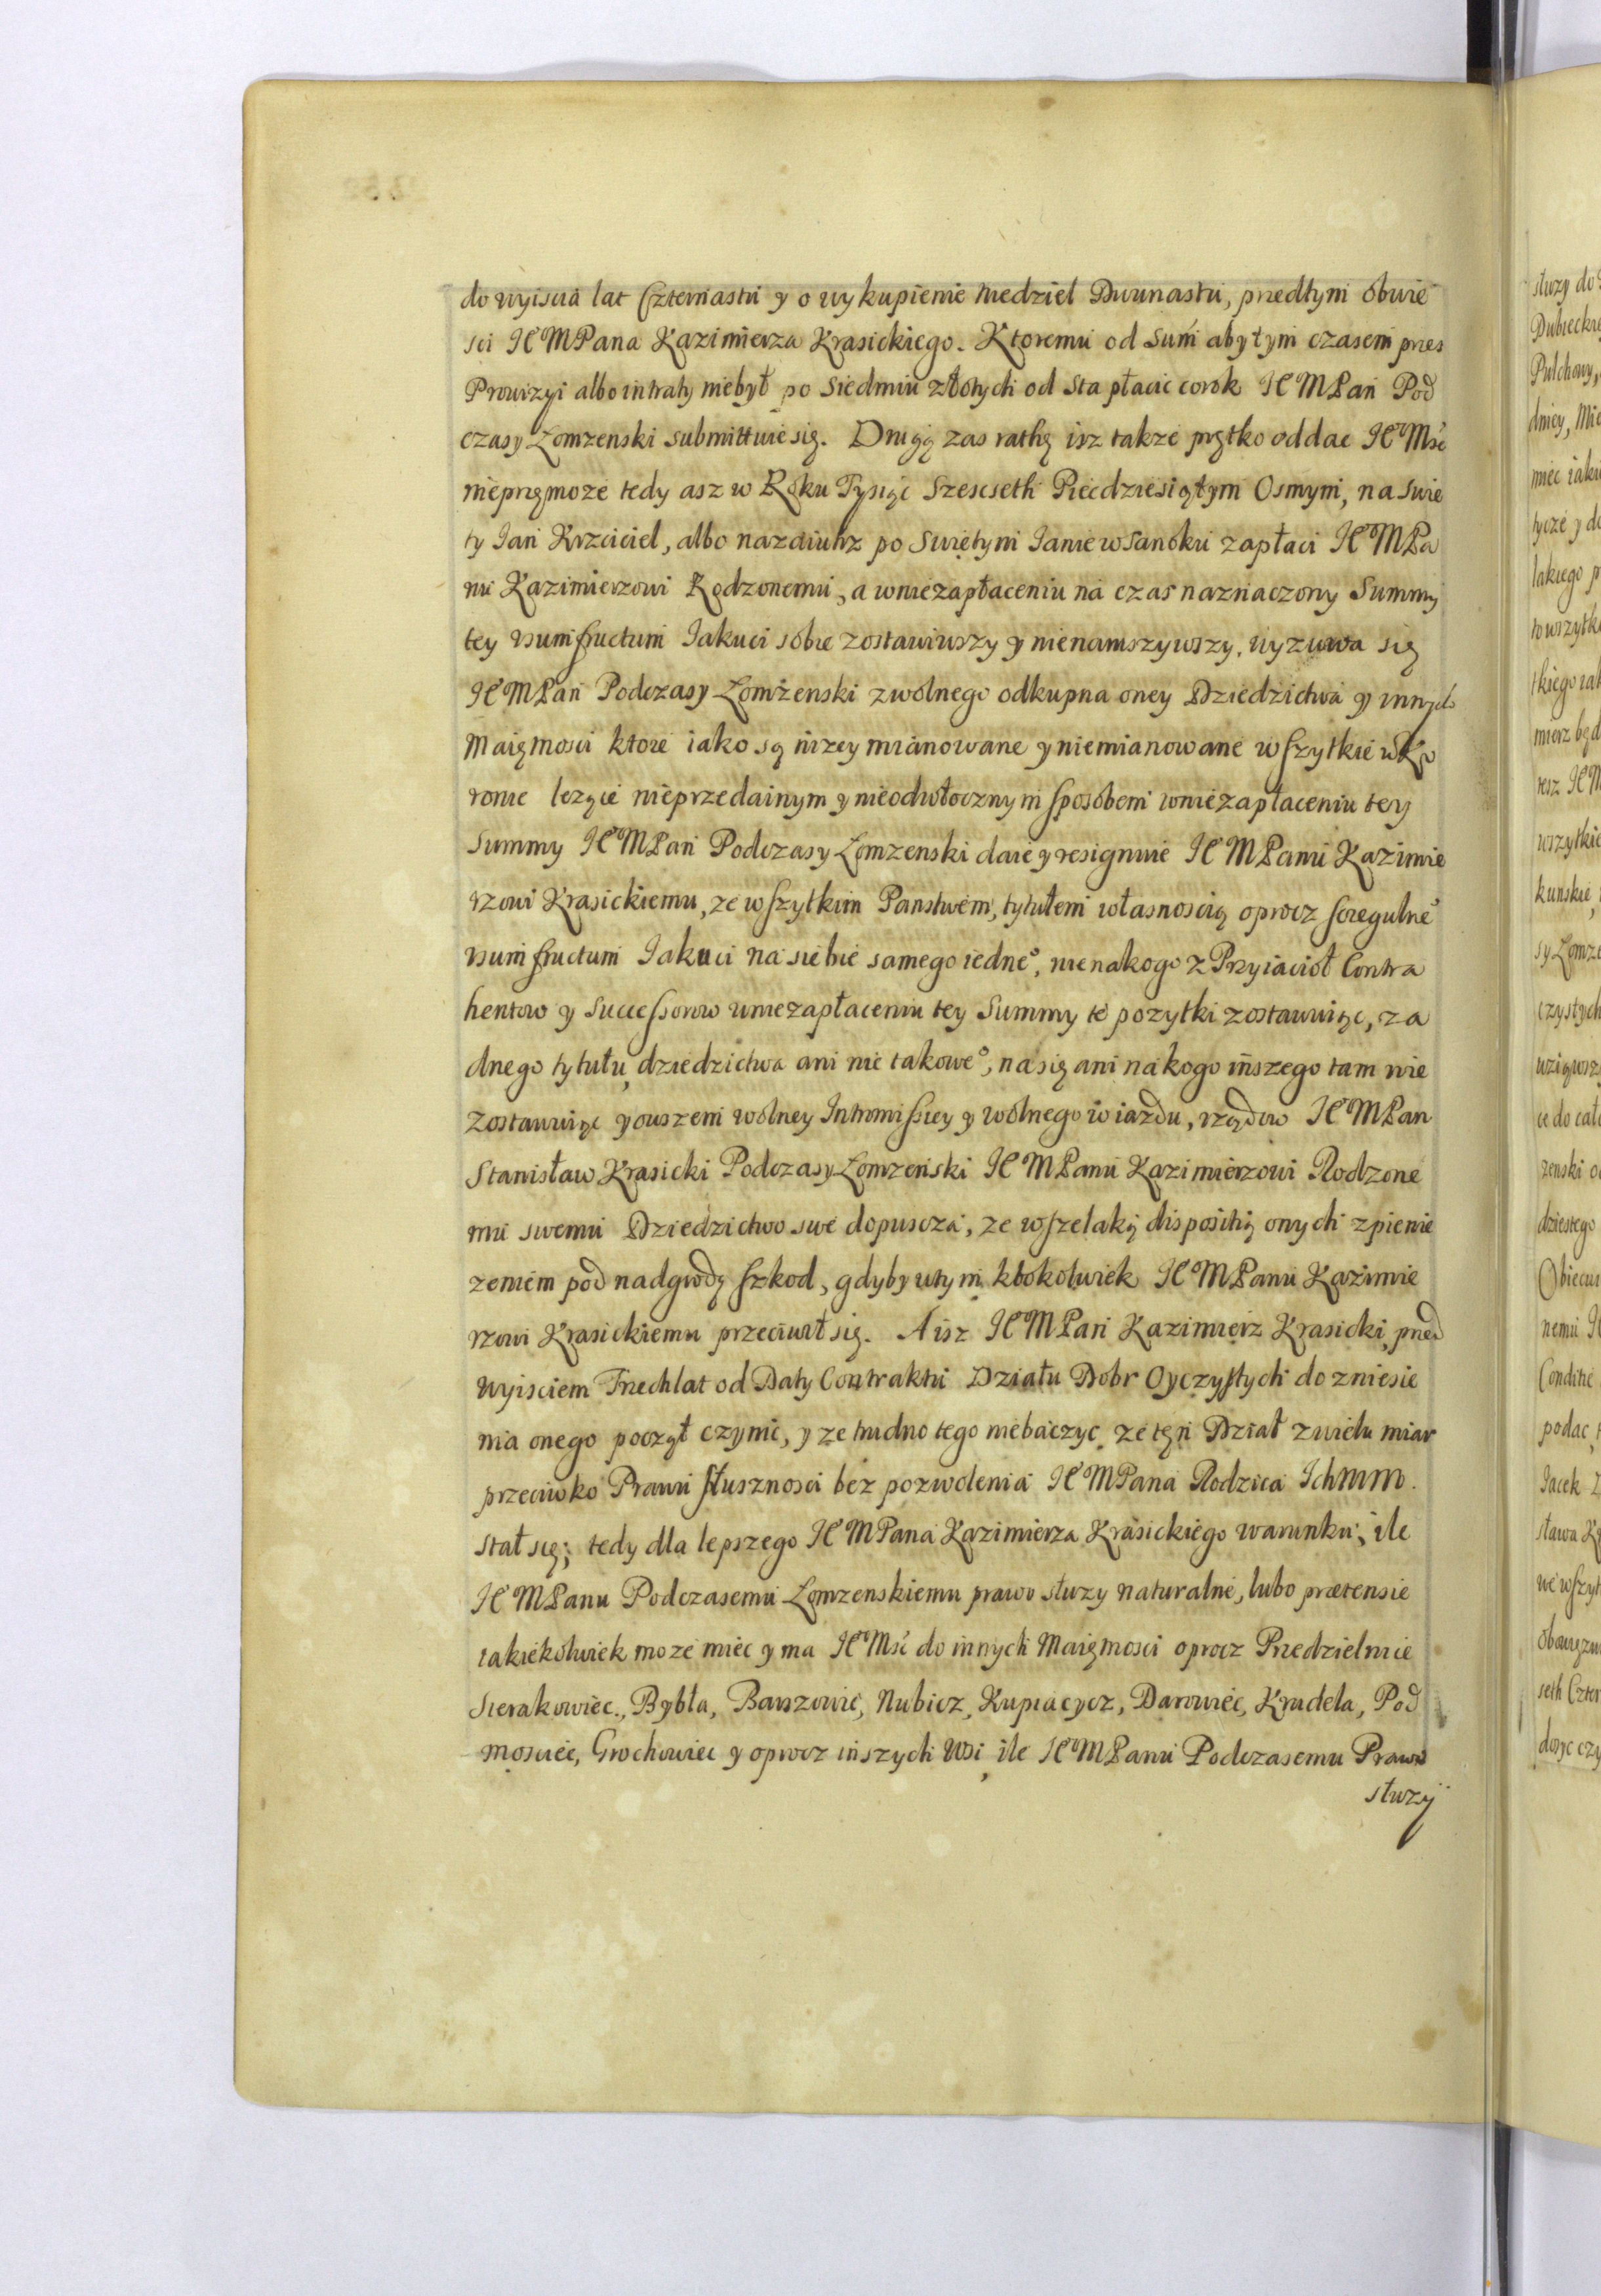 do wyiscia lat Czternastu y o wykupienie niedziel Dwunastu, przedtym obwie
sci JE͠MPana Kazimierza Krasickiego. Ktoremu od Sum̃ aby tym czasem przes
Prowizyi albo intraty niebył po siedmiu złotych od sta płacic corok JE͠MPan Pod
czasy Łomzenski submittuie się. Drugą zas rathę isz takze prętko oddac JE͠Mść
nieprzęmoze tedy asz w Roku Tysiąc Szescseth Piecdziesiątym Osmym, na Swie
ty Jan Krzciciel, albo nazaiutrz po Swiętym Janie w Sanoku zapłaci JE͠MPa
nu Kazimierzowi Rodzonemu, a wniezapłaceniu na czas naznaczony Summy
tey usumfructum Jakuci sobie zostawiwszy y nienaruszywszy, wyzuwa się
JE͠MPan Podczasy Łomżenski zwolnego odkupna oney Dziedzictwa y innych
Maiętnosci ktore iako są nizey mianowane y niemianowane wszytkie w Ko
ronie lezące nieprzedainym y nieodwłocznym sposobem wniezapłaceniu tey
Summy JE͠MPan Podczasy Łomzenski daie y resignuie JE͠MPanu Kazimie
rzowi Krasickiemu, ze wszytkim Panstwem, tytułem własnoscią oprocz szregulne͠
usumfructum Jakuci na siebie samego iedne͠, nie nakogo z Przyiacioł Contra
hentow y Successorow wniezapłaceniu tey Summy te pozytki zostawuiąc, za
dnego tytułu, dziedzictwa ani nic takowe͠, na się ani na kogo inszego tam nie
zostawuiąc y owszem wolney Intromissiey y wolnego wiazdu, rządow JE͠MPan
Stanisław Krasicki Podczasy Łomzeński JE͠MPanu Kazimierzowi Rodzone
mu swemu Dziedzictwo swe dopuscza, ze wszelaką dispositią onych z pienie
zeniem pod nadgrodą szkod, gdyby wtym ktokolwiek JE͠MPanu Kazimie
rzowi Krasickiemu przeciwił się. A isz JE͠MPan Kazimierz Krasicki, przed
wyisciem Trzech lat od Daty Contraktu Działu Dobr Oyczystych do zniesie
nia onego począł czynic, y ze trudno tego niebaczyc, ze tęn Dział z wielu miar
przeciwko Prawu słusznosci bez pozwolenia JE͠MPana Rodzica Ichmm.
stał się; tedy dla lepszego JE͠MPana Kazimierza Krasickiego warunku, ile
JE͠MPanu Podczasemu Łomzenskiemu prawo słuzy naturalne, lubo prætensie
iakiekolwiek moze miec y ma JE͠Mść do innych Maiętnosci oprocz Przedzielnice
Sierakowiec, Bybła, Barszowic, Nubicz, Kupiacycz, Darowiec, Krudela, Pod
mosciec, Grochowiec y oprocz inszych Wsi, ile JE͠MPanu Podczasemu Prawo
słuzy